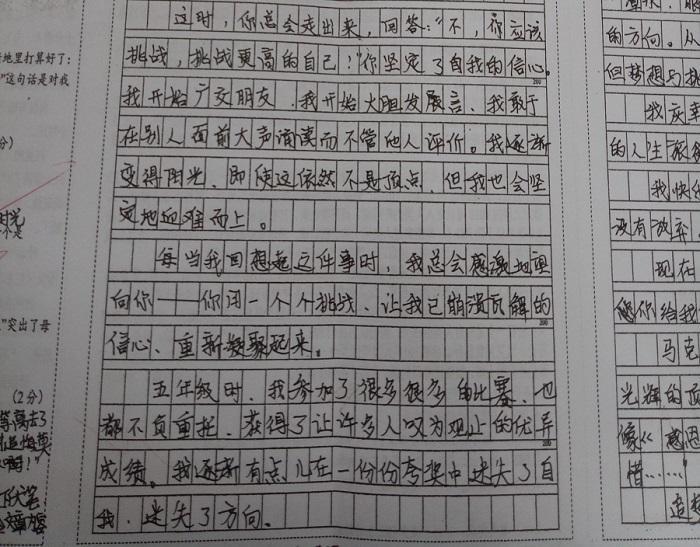 地里打算好了：
"这句话是对我
分）
个是
"突出了母
（2分）
等离去了
这时，你总会走出来，回答："不，你应该
挑战，挑战更高的自己！"你坚定了自我的信心。
我开始广交朋友，我开始大胆发展言、我敢于
在别人面前大声诵读而不管他人评价。我逐渐
变得阳光、即使这依然不是顶点，但我也会坚
定地迎难而上。
每当我回想起这件事时，我总会感激地望
向你——你用一个个挑战、让我已崩溃瓦解的
信心、重新凝聚起来。
五年级时、我参加了很多很多的比赛、也
都不负重托、获得了让许多人叹为观止的优异
成绩。我逐渐有点儿在一份份夸奖中迷失了自
我，迷失了方向。
200
300
的方向。从
但梦想与
我庆幸
的人生旅
我快
没有放弃、
现在
你给我
马克
光辉的
像《感恩
惜……